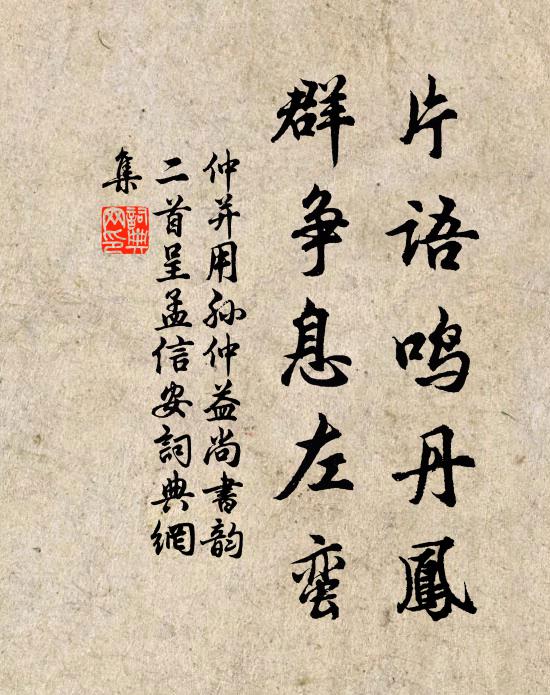 片语鸣丹鳳
群争息左蛮
仲并用孙仲益尚書韵
二首呈孟信安詞典網
集
詞典
网印